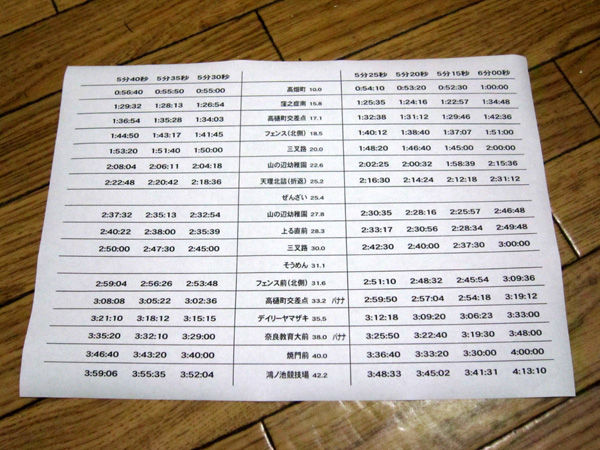 5分40秒 5分35秒 5分30秒 5分25秒 5分20秒 5分15秒 6分00秒
0:56:40 0:55:50 0:55:00 高畑町 10.0 0:54:10 0:53:20 0:52:30 1:00:00
1:29:32 1:28:13 1:26:54 窪之庄南 15.8 1:25:35 1:24:16 1:22:57 1:34:48
1:36:54 1:35:28 1:34:03 高樋町交差点 17.1 1:32:38 1:31:12 1:29:46 1:42:36
1:44:50 1:43:17 1:41:45 フェンス(北側) 18.5 1:40:12 1:38:40 1:37:07 1:51:00
1:53:20 1:51:40 1:50:00 三叉路 20.0 1:48:20 1:46:40 1:45:00 2:00:00
2:08:04 2:06:11 2:04:18 山の辺幼稚園 22.6 2:02:25 2:00:32 1:58:39 2:15:36
2:22:48 2:20:42 2:18:36 天理北詰(折返) 25.2 2:16:30 2:14:24 2:12:18 2:31:12
ぜんざい 25.4
2:37:32 2:35:13 2:32:54 山の辺幼稚園 27.8 2:30:35 2:28:16 2:25:57 2:46:48
2:40:22 2:38:00 2:35:39 上る直前 28.3 2:33:17 2:30:56 2:28:34 2:49:48
2:50:00 2:47:30 2:45:00 三叉路 30.0 2:42:30 2:40:00 2:37:30 3:00:00
そうめん 31.1
2:59:04 2:56:26 2:53:48 フェンス前(北側) 31.6 2:51:10 2:48:32 2:45:54 3:09:36
3:08:08 3:05:22 3:02:36 高樋町交差点 33.2 バナナ 2:59:50 2:57:04 2:54:18 3:19:12
3:21:10 3:18:12 3:15:15 デイリーヤマザキ 35.5 3:12:18 3:09:20 3:06:23 3:33:00
3:35:20 3:32:10 3:29:00 奈良教育大前 38.0 バナナ 3:25:50 3:22:40 3:19:30 3:48:00
3:46:40 3:43:20 3:40:00 焼門前 40.0 3:36:40 3:33:20 3:30:00 4:00:00
3:59:06 3:55:35 3:52:04 鴻ノ池競技場 42.2 3:48:33 3:45:02 3:41:31 4:13:10